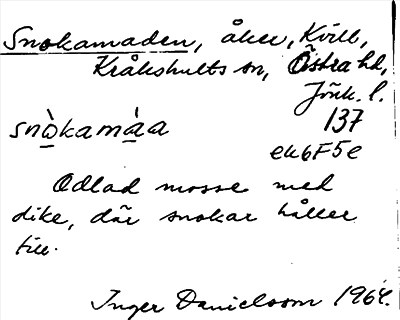 Snokamaden, åker, Kvill,
Kråkshults sn, Östra hd,
Jönk. l.
snò̱kamà̱a 137
ek6F5e
Odlad mosse med
dike, där snokar håller
till.
Inger Danielsson 1964.